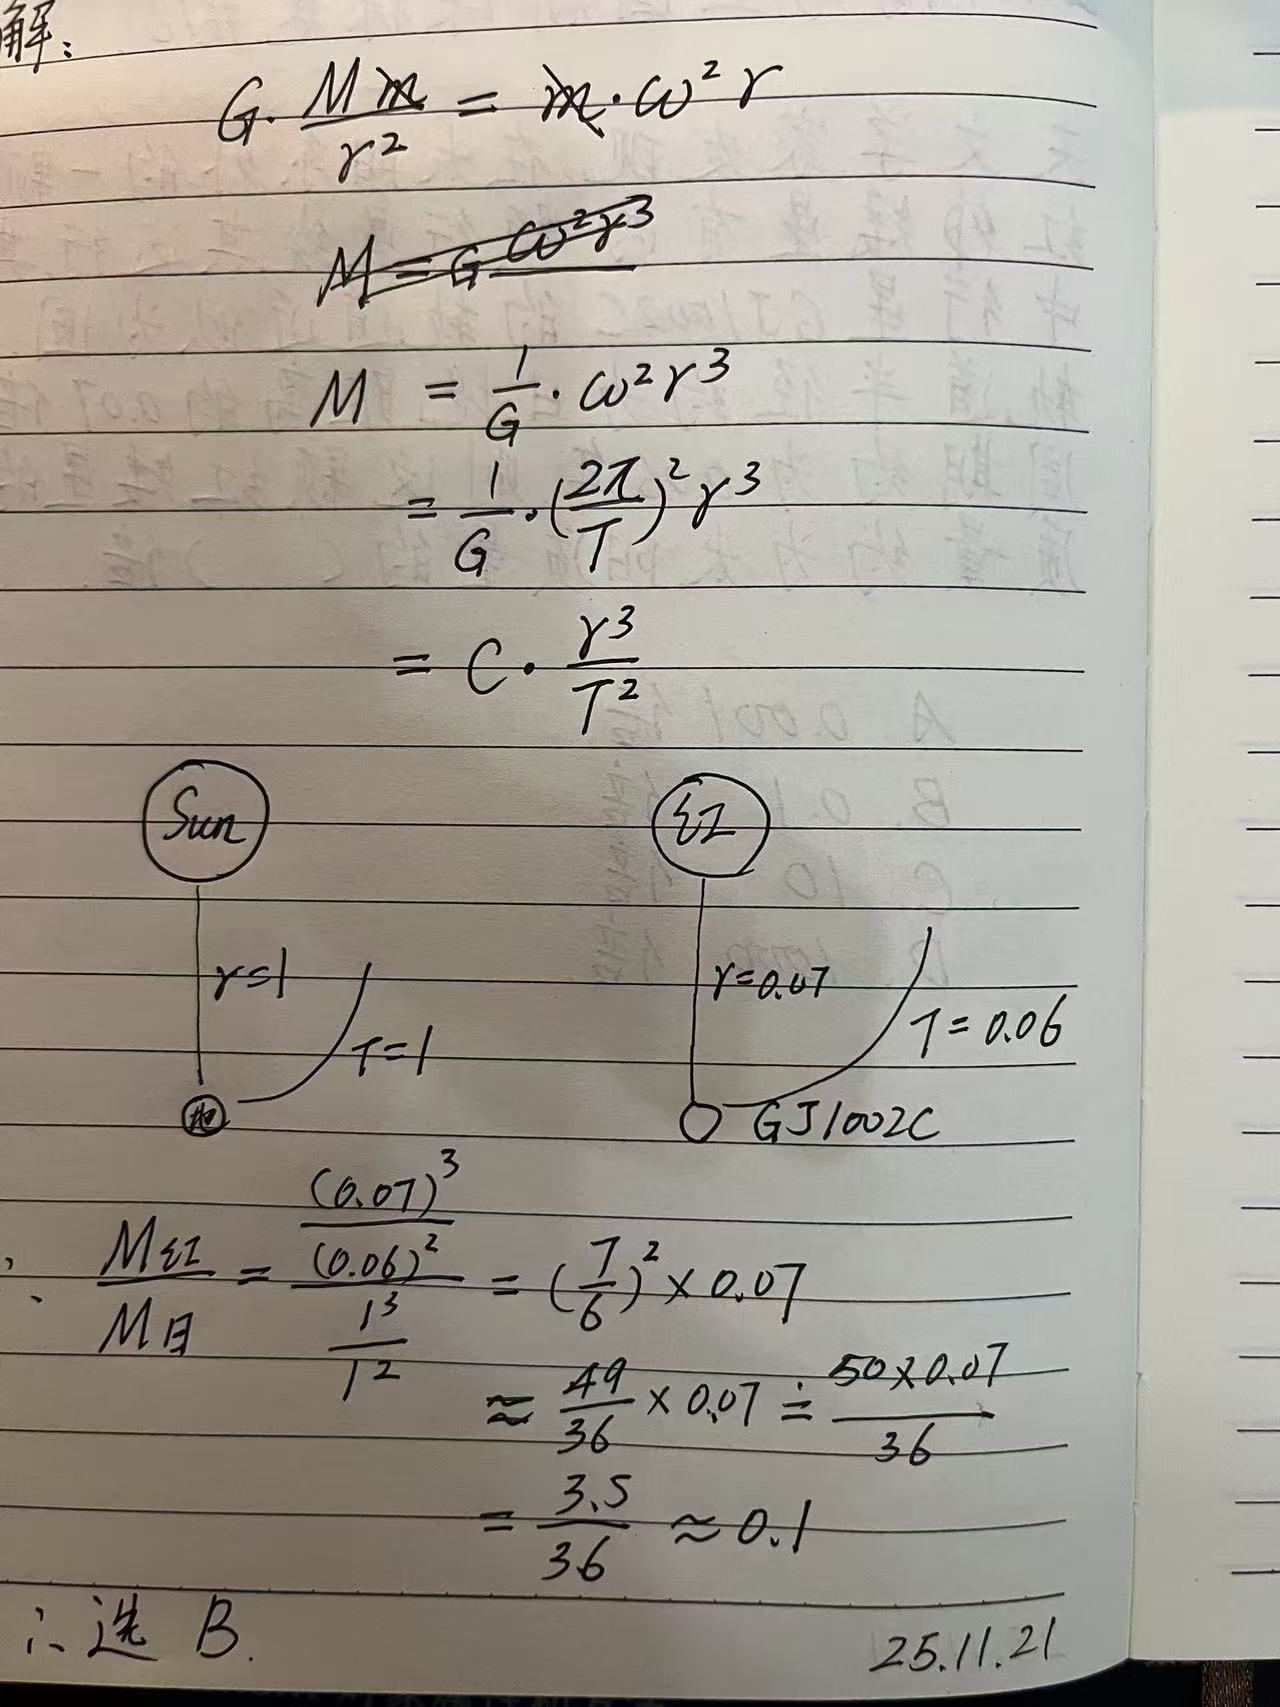 解:
G·Mm/r² = m·ω²r
M = G ω²r³
M = 1/G · ω²r³
= 1/G · (2π/T)² r³
= C · r³/T²
Sun 红
r=1 r=0.07
T=1 T=0.06
地 GJ1002C
∴ M红/M日 = ((0.07)³/(0.06)²)/(1³/1²) = (7/6)² × 0.07
≈ 49/36 × 0.07 ≐ 50×0.07/36
= 3.5/36 ≈ 0.1
∴ 选 B.
25.11.21